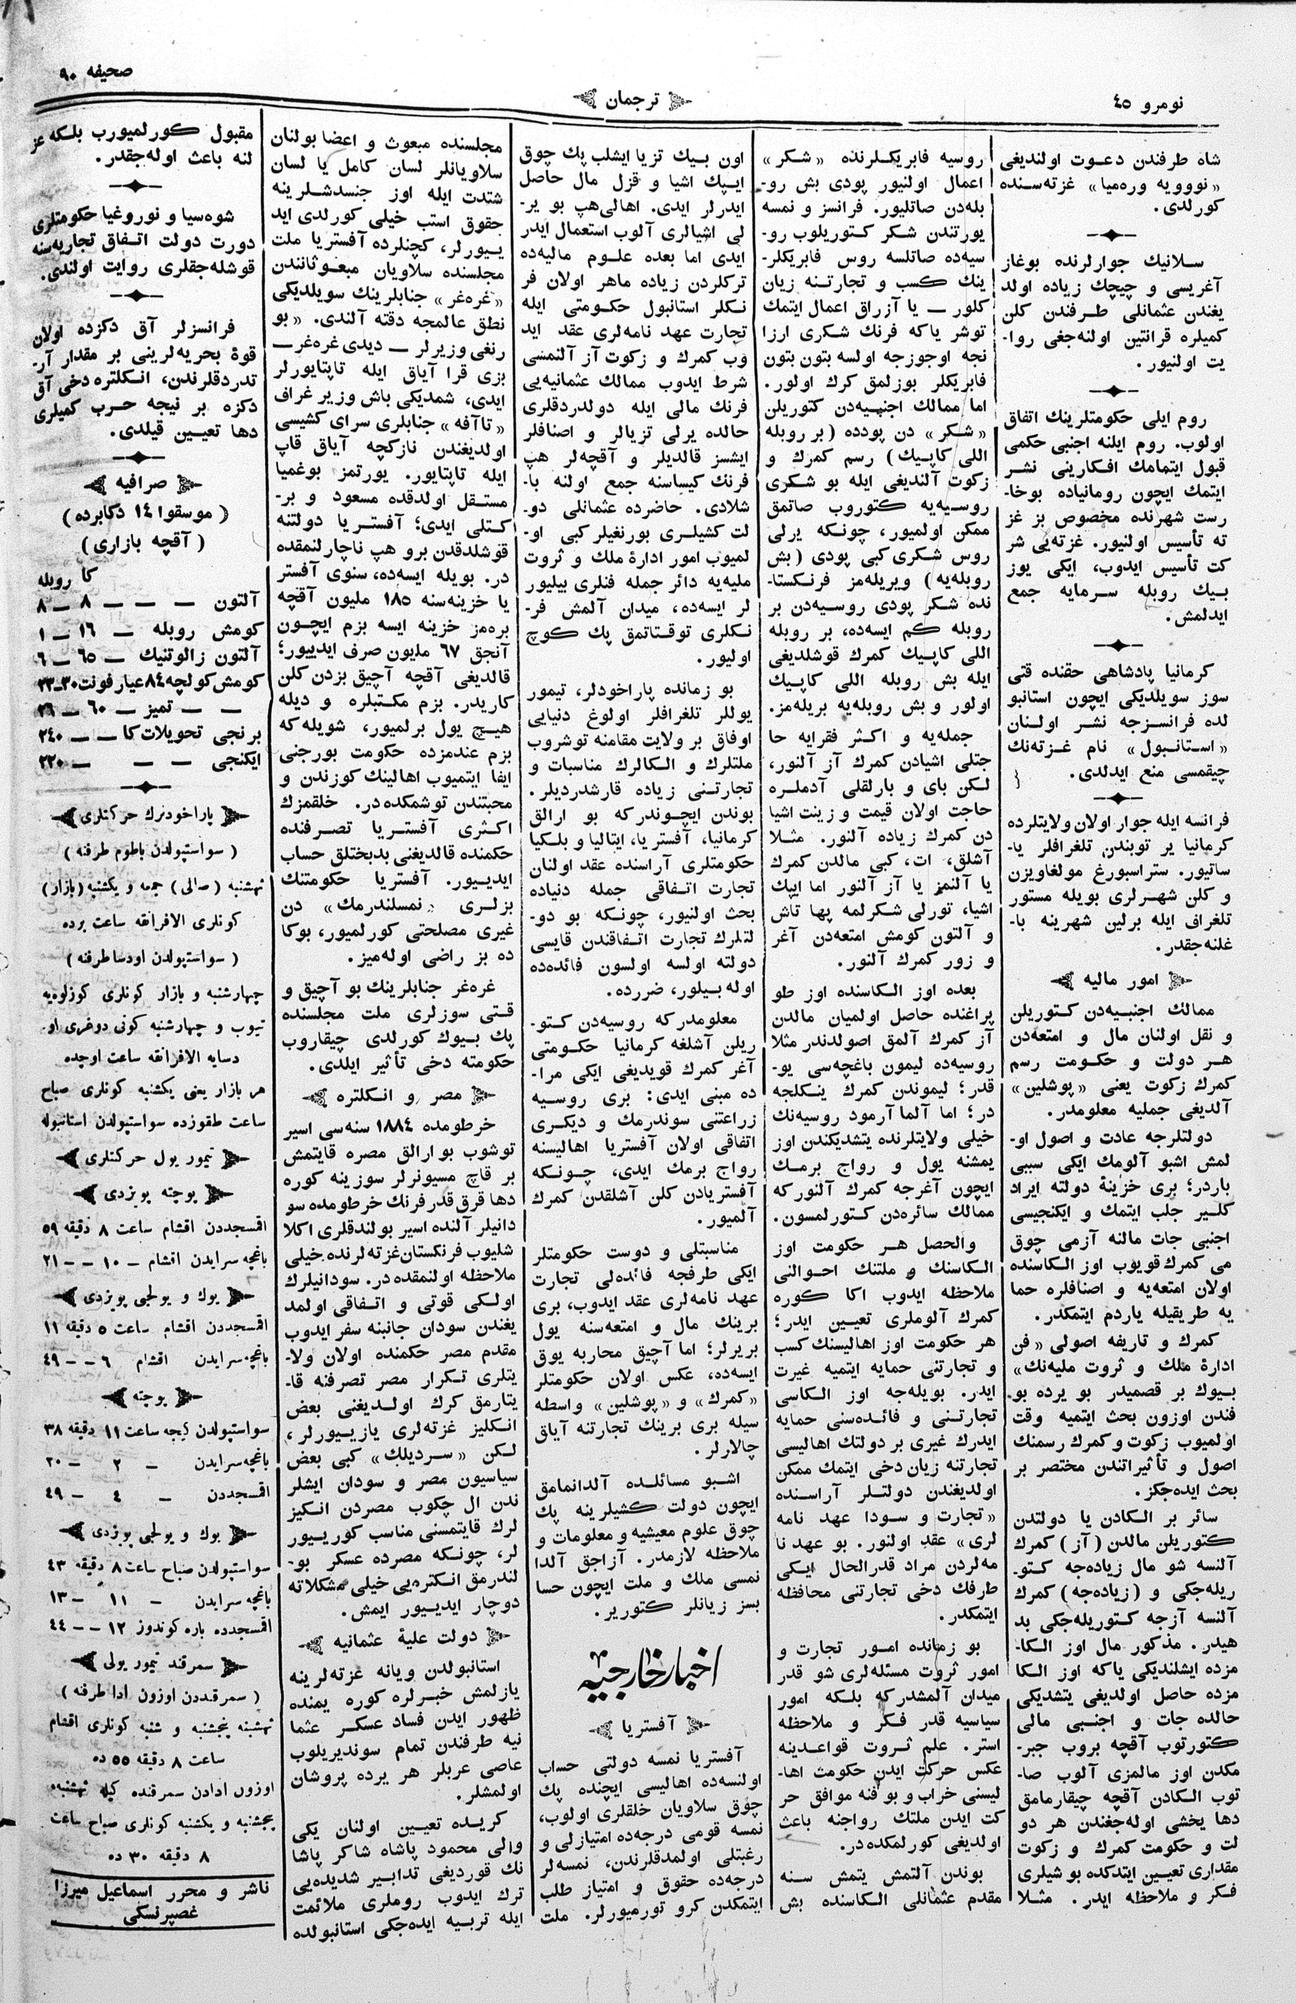 نومرو ٤٥
ترجمان
صحيفه ٩٠
شاه طرفندن دعوت اولنديغى
«نووويه وره‌ميا» غزته‌سنده
كورلدى.
سلانيك جوارلرنده بوغاز
آغريسى و چيچك زياده اولد
يغندن عثمانلى طرفندن كلن
كميلره قرانتين اولنه‌جغى روا-
يت اولنيور.
روم ايلى حكومتلرينك اتفاق
اولوب. روم ايلنه اجنبى حكمى
قبول ايتمامك افكارينى نشر
ايتمك ايچون رومانياده بوخا-
رست شهرنده مخصوص بر غز
ته تأسيس اولنيور. غزته‌يى شر
كت تأسيس ايدوب، ايكى يوز
بيك روبله سرمايه جمع
ايدلمش.
كرمانيا پادشاهى حقنده قتى
سوز سويلديكى ايچون استانبو
لده فرانسزجه نشر اولنان
«استانبول» نام غزته‌نك
چيقمسى منع ايدلدى.
فرانسه ايله جوار اولان ولايتلرده
كرمانيا ير توبندن تلغرافلر يا-
ساتيور. ستراسبورغ مولغاويزن
و كلن شهرلرى بويله مستور
تلغراف ايله برلين شهرينه با-
غلنه‌جقدر.
امور ماليه
ممالك اجنبيه‌دن كتوريلن
و نقل اولنان مال و امتعه‌دن
هر دولت و حكومت رسم
كمرك زكوت يعنى «پوشلين»
آلديغى جمليه معلومدر.
دولتلرجه عادت و اصول او-
لمش اشبو آلومك ايكى سببى
باردر؛ برى خزينهٔ دولته ايراد
كلير جلب ايتمك و ايكنجيسى
اجنبى جات مالنه آزمى چوق
مى كمرك قويوب اوز الكاسنده
اولان امتعه‌يه و اصنافلره حما
يه طريقيله ياردم ايتمكدر.
كمرك و تاريفه اصولى «فن
ادارهٔ ملك و ثروت مليه‌نك»
بيوك بر قصميدر بو يرده بو-
فندن اوزون بحث ايتميه وقت
اولميوب زكوت و كمرك رسمنك
اصول و تأثيراتندن مختصر بر
بحث ايده‌جكز.
سائر بر الكادن يا دولتدن
كتوريلن مالدن (آز) كمرك
آلنسه شو مال زياده‌جه كتو-
ريله‌جكى و (زياده‌جه) كمرك
آلنسه آزجه كتوريله‌جكى بد
هيدر. مذكور مال اوز الكا-
مزده ايشلنديكى ياكه اوز الكا
مزده حاصل اولديغى يتشديكى
حالده جات و اجنبى مالى
كتورتوب آقچه بروب جبر-
مكدن اوز مالمزى آلوب صا-
توب الكادن آقچه چيقارمامق
دها يخشى اوله‌جغندن هر دو
لت و حكومت كمرك و زكوت
مقدارى تعيين ايتدكده بو شيلرى
فكر و ملاحظه ايدر. مثلا
روسيه فابريكلرنده «شكر»
اعمال اولنيور پودى بش رو-
بله‌دن صاتليور. فرانسز و نمسه
يورتندن شكر كتوريلوب رو-
سيه‌ده صاتلسه روس فابريكلر-
ينك كسب و تجارتنه زيان
كلور — يا آزراق اعمال ايتمك
توشر ياكه فرنك شكرى ارزا
نجه اوجوزجه اولسه بتون بتون
فابريكلر بوزلمق كرك اولور.
اما ممالك اجنبيه‌دن كتوريلن
«شكر» دن پودده (بر روبله
اللى كاپيك) رسم كمرك و
زكوت آلنديغى ايله بو شكرى
روسيه‌يه كتوروب صاتمق
ممكن اولميور، چونكه يرلى
روس شكرى كبى پودى (بش
روبله‌يه) ويريله‌مز فرنكستا-
نده شكر پودى روسيه‌دن بر
روبله كم ايسه‌ده، بر روبله
اللى كاپيك كمرك قوشلديغى
ايله بش روبله اللى كاپيك
اولور و بش روبله‌يه بريله‌مز.
جمله‌يه و اكثر فقرايه حا
جتلى اشيادن كمرك آز آلنور،
لكن باى و بارلقلى آدملره
حاجت اولان قيمت و زينت اشيا
دن كمرك زياده آلنور. مثلا
آشلق، ات، كبى مالدن كمرك
يا آلنمز يا آز آلنور اما ايپك
اشيا، تورلى شكرلمه بها تاش
و آلتون كومش امتعه‌دن آغر
و زور كمرك آلنور.
بعده اوز الكاسنده اوز طو
پراغنده حاصل اولميان مالدن
آز كمرك آلمق اصولدندر مثلا
روسيه‌ده ليمون باغچه‌سى يو-
قدر؛ ليموندن كمرك ينكلجه
در؛ اما آلما آرمود روسيه‌نك
خيلى ولايتلرنده يتشديكندن اوز
يمشنه يول و رواج برمك
ايچون آغرجه كمرك آلنور كه
ممالك سائره‌دن كتورلمسون.
والحصل هر حكومت اوز
الكاسنك و ملتنك احوالنى
ملاحظه ايدوب اكا كوره
كمرك آلوملرى تعيين ايدر؛
هر حكومت اوز اهاليسنك كسب
و تجارتنى حمايه ايتميه غيرت
ايدر. بويله‌جه اوز الكاسى
تجارتنى و فائده‌سنى حمايه
ايدرك غيرى بر دولتك اهاليسى
تجارتنه زيان دخى ايتمك ممكن
اولديغندن دولتلر آراسنده
«تجارت و سودا عهد نامه
لرى» عقد اولنور. بو عهد نا
مه‌لردن مراد قدر الحال ايكى
طرفك دخى تجارتنى محافظه
ايتمكدر.
بو زمانده امور تجارت و
امور ثروت مسئله‌لرى شو قدر
ميدان آلمشدر كه بلكه امور
سياسيه قدر فكر و ملاحظه
استر. علم ثروت قواعدينه
عكس حركت ايدن حكومت اها-
ليسنى خراب و بو فنه موافق حر
كت ايدن ملتك رواجنه باعث
اولديغى كورلمكده‌در.
بوندن آلتمش يتمش سنه
مقدم عثمانلى الكاسنده بش
اون بيك تزيا ايشلب پك چوق
ايپك اشيا و قزل مال حاصل
ايدرلر ايدى. اهالى هپ بو ير-
لى اشيالرى آلوب استعمال ايدر
ايدى اما بعده علوم ماليه‌ده
تركلردن زياده ماهر اولان فر
نكلر استانبول حكومتى ايله
تجارت عهد نامه‌لرى عقد ايد
وب كمرك و زكوت آز آلنمسى
شرط ايدوب ممالك عثمانيه‌يى
فرنك مالى ايله دولدردقلرى
حالده يرلى تزيالر و اصنافلر
ايشسز قالديلر و آقچه‌لر هپ
فرنك كيساسنه جمع اولنه با-
شلادى. حاضرده عثمانلى دو-
لت كشيلرى بورنغيلر كبى او-
لميوب امور ادارهٔ ملك و ثروت
مليه‌يه دائر جمله فنلرى بيليور
لر ايسه‌ده، ميدان آلمش فر-
نكلرى توقتاتمق پك كوچ
اوليور.
بو زمانده پاراخودلر، تيمور
يوللر تلغرافلر اولوغ دنيايى
اوفاق بر ولايت مقامنه توشروب
ملتلرك و الكالرك مناسبات و
تجارتنى زياده قارشدرديلر.
بوندن ايچوندر كه بو ارالق
كرمانيا، آفستريا، ايتاليا و بلكيا
حكومتلرى آراسنده عقد اولنان
تجارت اتفاقى جمله دنياده
بحث اولنيور، چونكه بو دو-
لتلرك تجارت اتفاقندن قايسى
دولته اولسه اولسون فائده‌ده
اوله بيلور، ضررده.
معلومدر كه روسيه‌دن كتو-
ريلن آشلغه كرمانيا حكومتى
آغر كمرك قويديغى ايكى مرا-
ده مبنى ايدى: برى روسيه
زراعتنى سوندرمك و ديكرى
اتفاقى اولان آفستريا اهاليسنه
رواج برمك ايدى، چونكه
آفستريادن كلن آشلقدن كمرك
آلميور.
مناسبتلى و دوست حكومتلر
ايكى طرفجه فائده‌لى تجارت
عهد نامه‌لرى عقد ايدوب، برى
برينك مال و امتعه‌سنه يول
بريرلر؛ اما آچيق محاربه يوق
ايسه‌ده، عكس اولان حكومتلر
«كمرك» و «پوشلين» واسطه
سيله برى برينك تجارتنه آياق
چالارلر.
اشبو مسائلده آلدانمامق
ايچون دولت كشيلرينه پك
چوق علوم معيشيه و معلومات و
ملاحظه لازمدر. آزاجق آلدا
نمسى ملك و ملت ايچون حسا
بسز زيانلر كتورير.
اخبار خارجيه
آفستريا
آفستريا نمسه دولتى حساب
اولنسه‌ده اهاليسى ايچنده پك
چوق سلاويان خلقلرى اولوب،
نمسه قومى درجه‌ده امتيازلى و
رغبتلى اولمدقلرندن، نمسه‌لر
درجه‌ده حقوق و امتياز طلب
ايتمكدن كرو تورميورلر. ملت
مجلسنده مبعوث و اعضا بولنان
سلاويانلر لسان كامل يا لسان
شتدت ايله اوز جنسدشلرينه
حقوق استب خيلى كورلدى ايد
يورلر، كچنلرده آفستريا ملت
مجلسنده سلاويان مبعوثانندن
«غره‌غر» جنابلرينك سويلديكى
نطق عالمجه دقته آلندى. «بو
رنغى وزيرلر — ديدى غره‌غر—
بزى قرا آياق ايله تاپتايورلر
ايدى، شمديكى باش وزير غراف
«تاآفه» جنابلرى سراى كشيسى
اولديغندن نازكچه آياق قاپ
ايله تاپتايور. يورتمز بوغميا
مستقل اولدقده مسعود و بر-
كتلى ايدى؛ آفستريا دولتنه
قوشلدقدن برو هپ ناچارلنمقده
در. بويله ايسه‌ده، سنوى آفستر
يا خزينه‌سنه ١٨٥ مليون آقچه
بره‌مز خزينه ايسه بزم ايچون
آنجق ٦٧ مليون صرف ايدييور؛
قالديغى آقچه آچيق بزدن كلن
كاريدر. بزم مكتبلره و ديله
هيچ يول برلميور، شويله كه
بزم عندمزده حكومت بورجنى
ايفا ايتميوب اهالينك كوزندن و
محبتندن توشمكده‌در. خلقمزك
اكثرى آفستريا تصرفنده
حكمنده قالديغنى بدبختلق حساب
ايدييور. آفستريا حكومتنك
بزلرى «نمسلندرمك» دن
غيرى مصلحتى كورلميور، بوكا
ده بز راضى اوله‌ميز.
غره‌غر جنابلرينك بو آچيق و
قتى سوزلرى ملت مجلسنده
پك بيوك كورلدى چيقاروب
حكومته دخى تأثير ايلدى.
مصر و انكلتره
خرطومده ١٨٨٤ سنه‌سى اسير
توشوب بو ارالق مصره قايتمش
بر قاچ مسيونرلر سوزينه كوره
دها قرق قدر فرنك خرطومده سو
دانيلر آلنده اسير بولندقلرى اكلا
شليوب فرنكستان غزته‌لرنده خيلى
ملاحظه اولنمقده‌در. سودانيلرك
اولكى قوتى و اتفاقى اولمد
يغندن سودان جانبنه سفر ايدوب
مقدم مصر حكمنده اولان ولا-
يتلرى تكرار مصر تصرفنه قا-
يتارمق كرك اولديغنى بعض
انكليز غزته‌لرى يازييورلر،
لكن «سرديلك» كبى بعض
سياسيون مصر و سودان ايشلر
ندن ال چكوب مصردن انكيز
لرك قايتمسنى مناسب كورييور
لر، چونكه مصرده عسكر بو-
لندرمق انكلتره‌يى خيلى مشكلاته
دوچار ايدييور ايمش.
دولت عليهٔ عثمانيه
استانبولدن ويانه غزته‌لرينه
يازلمش خبرلره كوره يمنده
ظهور ايدن فساد عسكر عثما
نيه طرفندن تمام سونديريلوب
عاصى عربلر هر يرده پروشان
اولمشلر.
كريده تعيين اولنان يكى
والى محمود پاشاه شاكر پاشا
نك قورديغى تدابير شديده‌يى
ترك ايدوب روملرى ملائمت
ايله تربيه ايده‌جكى استانبولده
مقبول كورلميورب بلكه عز
لنه باعث اوله‌جقدر.
شوه‌سيا و نوروغيا حكومتلرى
دورت دولت اتفاق تجاريه‌سنه
قوشله‌جقلرى روايت اولندى.
فرانسزلر آق دكزده اولان
قوهٔ بحريه‌لرينى بر مقدار آر-
تدردقلرندن، انكلتره دخى آق
دكزه بر نيجه حرب كميلرى
دها تعيين قيلدى.
صرافيه
(موسقوا ١٤ دكابرده)
(آقچه بازارى)
كا روبله
آلتون — — — ٨ — ٨
كومش روبله — ١٦ — ١
آلتون زالوتنيك — ٦٥ — ٦
كومش كولچه ٨٤ عيار فونت ٣٠—٢٣
— — تميز — ٦٠ — ٢٦
برنجى تحويلات كا — — ٢٤٠
ايكنجى — — — ٢٢٠
پاراخودنرك حركتلرى
(سواستپولدن باطوم طرفنه)
تهشنبه (صالى) جمعه و يكشنبه (بازار)
كونلرى الافرانقه ساعت برده
(سواستپولدن اودسا طرفنه)
چهارشنبه و بازار كونلرى كوزلوه‌يه
تيوب و چهارشنبه كونى دوغرى او.
دسايه الافرانقه ساعت اوچده
هر بازار يعنى يكشنبه كونلرى صباح
ساعت طقوزده سواستپولدن استانبوله
تيمور يول حركتلرى
پوچته پويزدى
اقمسجددن اقشام ساعت ٨ دقيقه ٥٩
باغچه سرايدن اقشام — ١٠ — ٢١
يوك و يولجى پويزدى
اقمسجددن اقشام ساعت ٥ دقيقه ١١
باغچه سرايدن اقشام ٦ — ٤٩
پوچته
سواستپولدن كيجه ساعت ١١ دقيقه ٣٨
باغچه سرايدن — ٢ — ٢٠
اقمسجددن — ٤ — ٤٩
يوك و يولجى پويزدى
سواستپولدن صباح ساعت ٨ دقيقه ٤٣
باغچه سرايدن — ١١ — ١٣
اقمسجدده باره كوندوز ١٢ — ٤٤
سمرقند تيمور يولى
(سمرقنددن اوزون ادا طرفنه)
تهشنبه پنجشنبه و شنبه كونلرى اقشام
ساعت ٨ دقيقه ٥٥ ده
اوزون ادادن سمرقنده كيله تهشنبه
پنجشنبه و يكشنبه كونلرى صباح ساعت
٨ دقيقه ٣٠ ده
ناشر و محرر اسماعيل ميرزا
غصپرنسكى